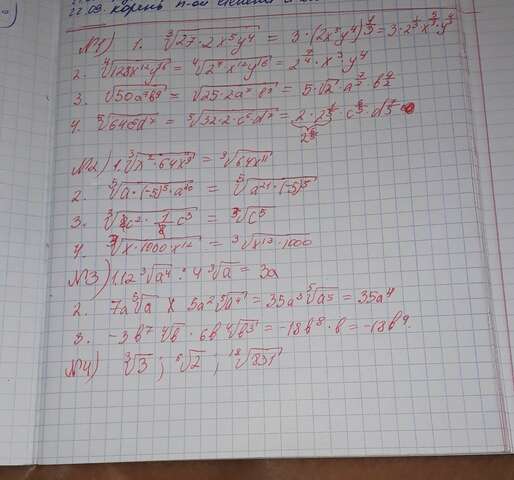 22.09 корень n-ой степени и
№1) 1. ³√27·2x⁵y⁴ = 3·(2x⁵y⁴)^⅓ = 3·2^⅓ x^(5/3) y^(4/3)
2. ⁴√128x¹²y¹⁶ = ⁴√2⁷x¹²y¹⁶ = 2^(7/4)·x³y⁴
3. √50a⁷b⁹ = √25·2a⁷b⁹ = 5·√2·a^(7/2) b^(9/2)
4. ⁵√64c⁶d⁷ = ⁵√32·2·c⁶d⁷ = 2·2^(1/5)·c^(6/5)·d^(7/5)
№2) 1. ³√x²·64x⁹ = ³√64x¹¹
2. ⁵√a·(-5)⁵·a²⁰ = ⁵√a²¹·(-5)⁵
3. ³√8c²·1/8 c³ = ³√c⁵
4. ³√x·1000·x¹² = ³√x¹³·1000
№3) 1. 12 ³√a⁴ : 4 ³√a = 3a
2. 7a⁵√a × 5a²⁵√a⁴ = 35a³⁵√a⁵ = 35a⁴
3. -3b⁷ ⁴√b · 6b ⁴√b³ = -18b⁸·b = -18b⁹.
№4) ³√3 ; ⁶√2 ; ¹⁸√831